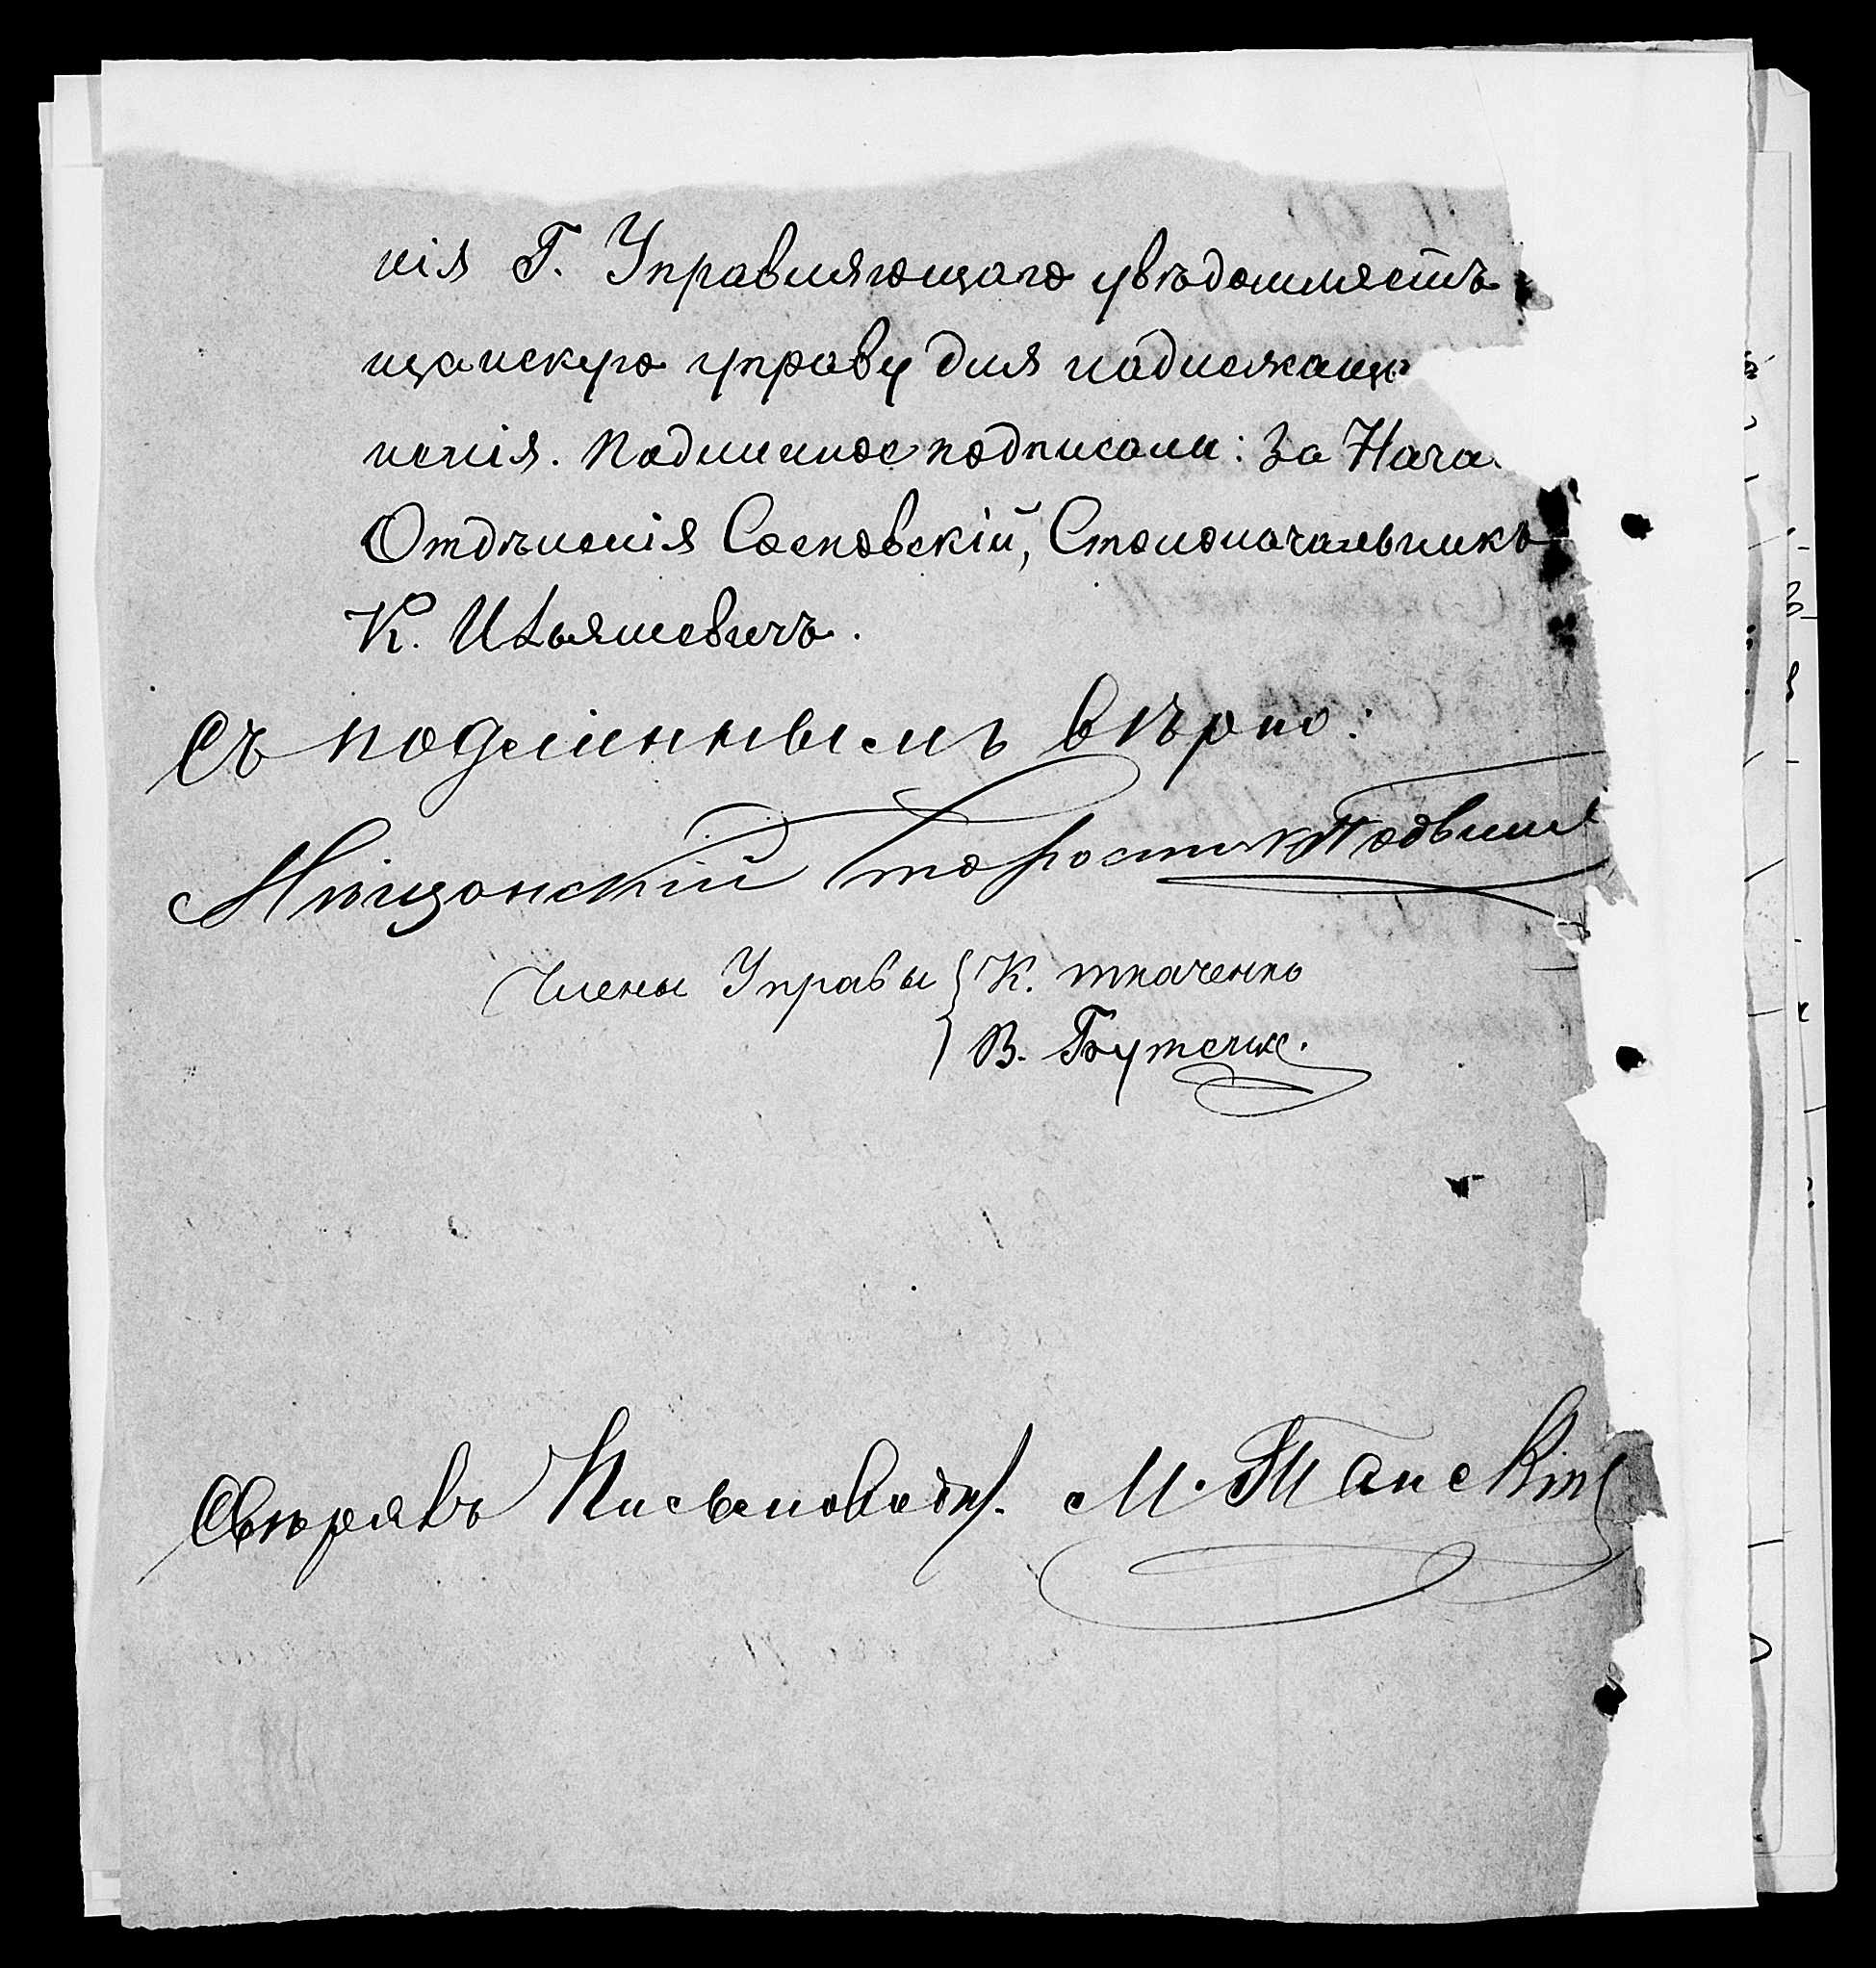 нія Г. Управляющаго увѣдомляетъ
щанскую управу для надлежаще
ненія. Подлинное подписали: За Нача
Отдѣленія Сосновскій, Столоначальникъ
К. Ильяшевичъ.
Съ подлиннымъ вѣрно:
Мѣщанскій Староста
Члены Управы { К. Ткаченко
В. Бутенко.
Свѣрялъ Письмовод. М.